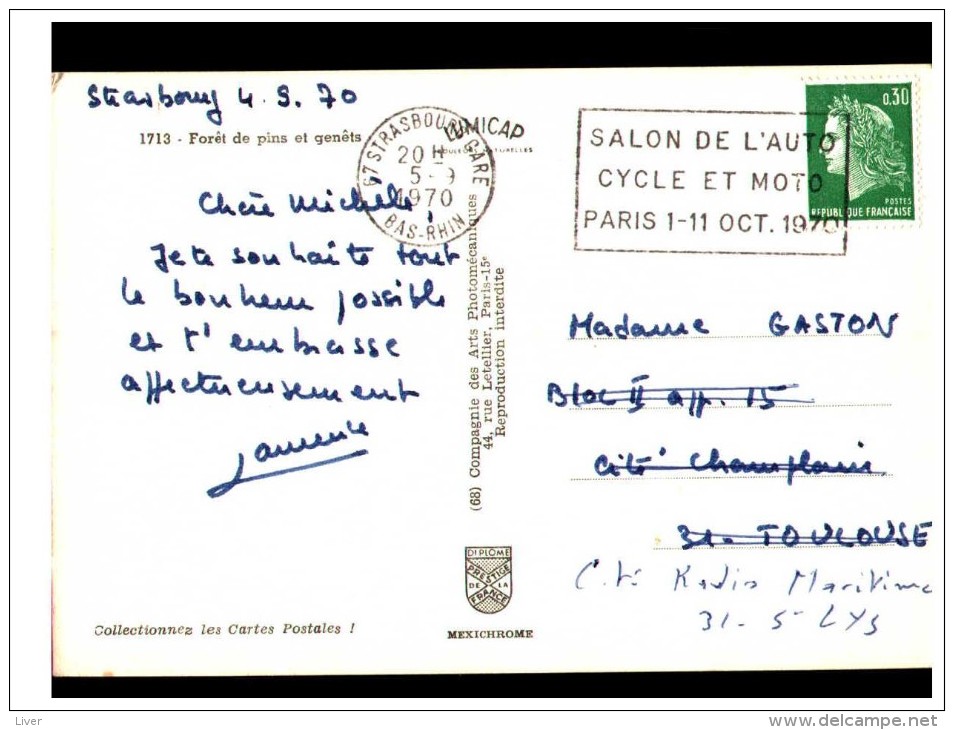 Strasbourg 4.9.70
1713 - Forêt de pins et genêts
LUMICAP
COULEURS NATURELLES
67 STRASBOURG GARE
20 H
5 - 9
1970
BAS-RHIN
SALON DE L'AUTO
CYCLE ET MOTO
PARIS 1-11 OCT. 1970
0,30
POSTES
REPUBLIQUE FRANÇAISE
Chère Michelle,
Je te souhaite tout
le bonheur possible
et t'embrasse
affectueusement
Laurence
(68) Compagnie des Arts Photomécaniques
44, rue Letellier, Paris-15e
Reproduction interdite
Madame GASTON
Bloc II app. 15
Cité Champlain
31. TOULOUSE
Cité Radio Maritime
31 - St LYS
DIPLOME
PRESTIGE
DE LA
FRANCE
MEXICHROME
Collectionnez les Cartes Postales !
Liver
www.delcampe.net